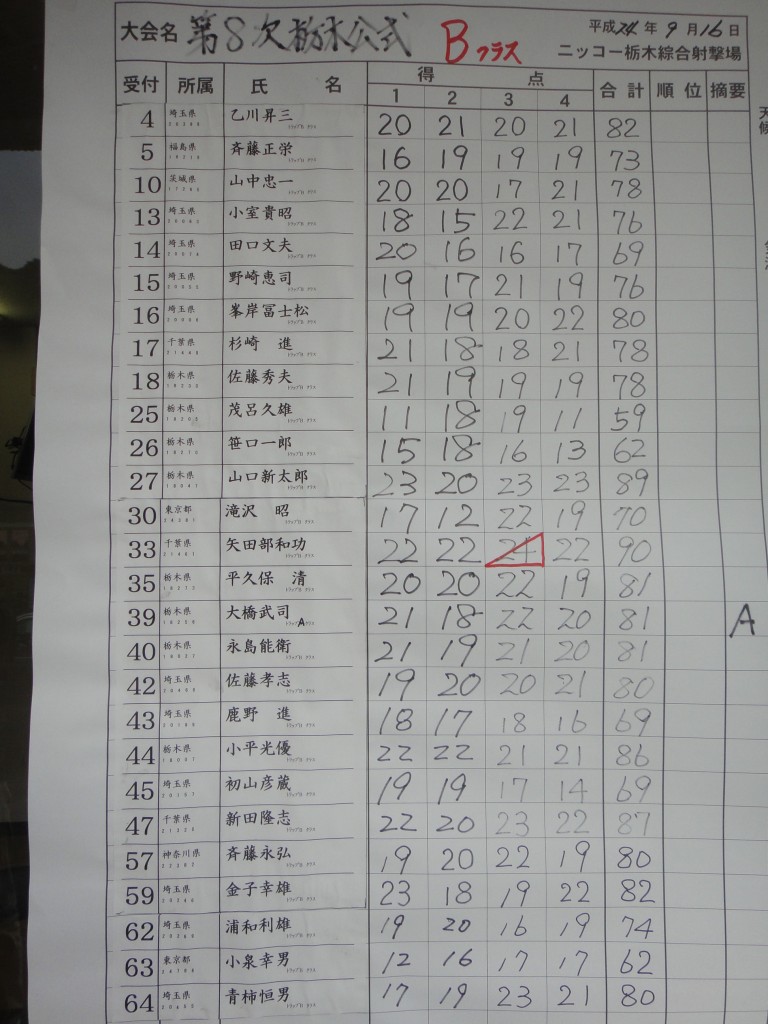 大会名 第8次栃木公式 Bクラス 平成24年9月16日
ニッコー栃木綜合射撃場
受付 所属 氏名 得点 合計 順位 摘要
1 2 3 4
4 埼玉県 乙川昇三 20 21 20 21 82
5 福島県 斉藤正栄 16 19 19 19 73
10 茨城県 山中忠一 20 20 17 21 78
13 埼玉県 小室貴昭 18 15 22 21 76
14 埼玉県 田口文夫 20 16 16 17 69
15 埼玉県 野崎恵司 19 17 21 19 76
16 埼玉県 峯岸冨士松 19 19 20 22 80
17 千葉県 杉崎 進 21 18 18 21 78
18 栃木県 佐藤秀夫 21 19 19 19 78
25 栃木県 茂呂久雄 11 18 19 11 59
26 栃木県 笹口一郎 15 18 16 13 62
27 栃木県 山口新太郎 23 20 23 23 89
30 東京都 滝沢 昭 17 12 22 19 70
33 千葉県 矢田部和功 22 22 24 22 90
35 栃木県 平久保 清 20 20 22 19 81
39 栃木県 大橋武司 A 21 18 22 20 81 A
40 栃木県 永島能衛 21 19 21 20 81
42 埼玉県 佐藤孝志 19 20 20 21 80
43 埼玉県 鹿野 進 18 17 18 16 69
44 栃木県 小平光優 22 22 21 21 86
45 埼玉県 初山彦蔵 19 19 17 14 69
47 千葉県 新田隆志 22 20 23 22 87
57 神奈川県 斉藤永弘 19 20 22 19 80
59 埼玉県 金子幸雄 23 18 19 22 82
62 埼玉県 浦和利雄 19 20 16 19 74
63 東京都 小泉幸男 12 16 17 17 62
64 埼玉県 青柿恒男 17 19 23 21 80